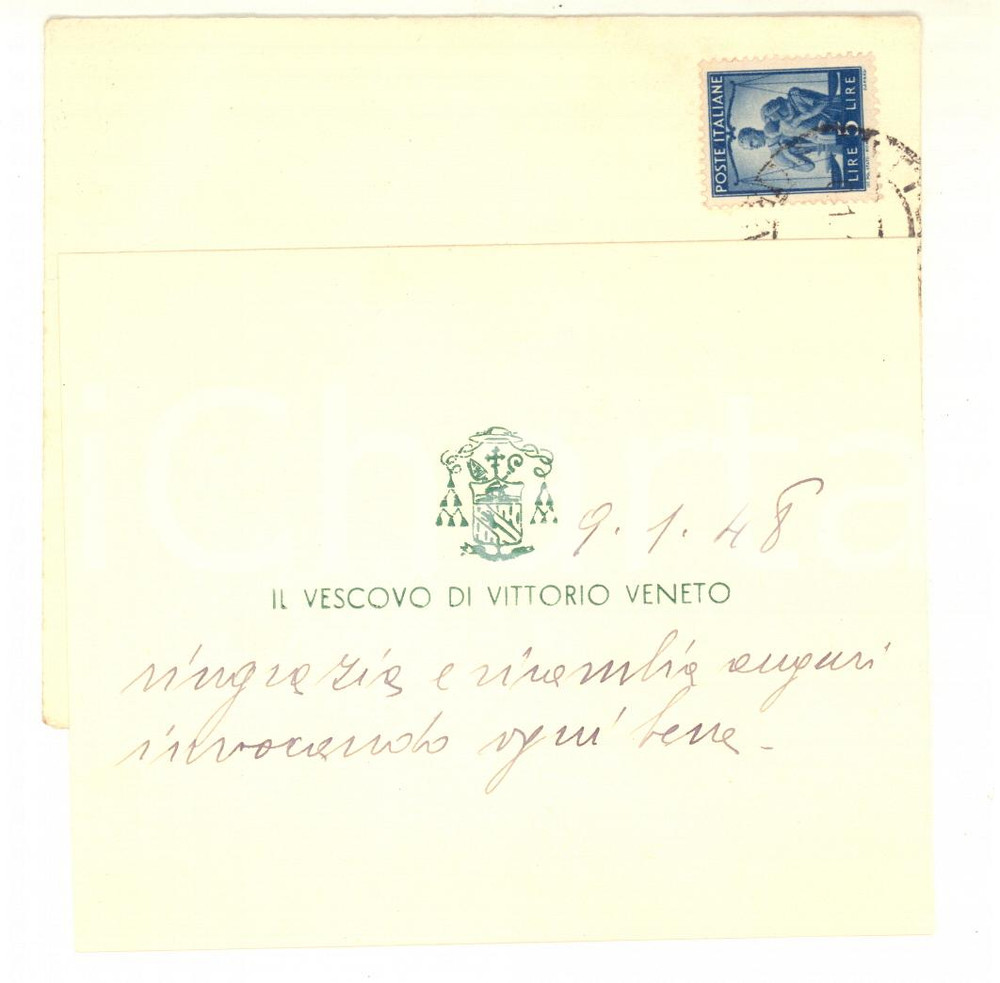 POSTE ITALIANE
LIRE 5 LIRE
iCharta
9. 1. 48
IL VESCOVO DI VITTORIO VENETO
ringrazia e ricambia auguri
invocando ogni bene -